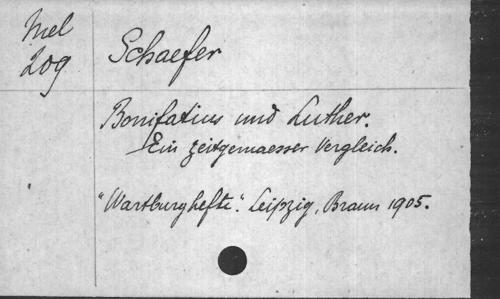 Mel
209
Schaefer
Bonifatius und Luther.
Ein zeitgemaesser Vergleich.
"Wartburghefte". Leipzig, Braun 1905.